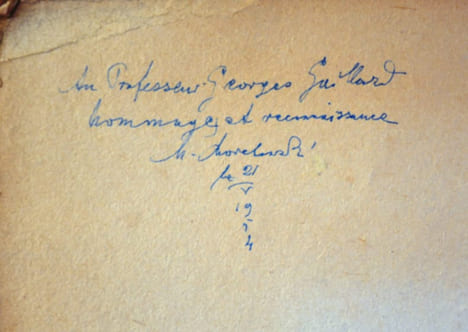 Au Professeur Georges Gaillard
hommage et reconnaissance
M. Morelowski
le 21
V
19
5
4